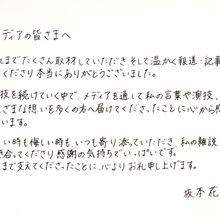 ディアの皆さまへ
まで たくさん取材していただき、そして温かく報道・記事
くださり本当にありがとうございました。
技を続けていく中で、メディアを通して私の言葉や演技、
ざまな想いを多くの方へ届けてくださったことに心から感
います。
しい時も悔しい時も、いつも寄り添っていただき、私の雑談
合ってくださり感謝の気持ちでいっぱいです。
まで支えてくださったことに、心よりお礼申し上げます。
坂本 花